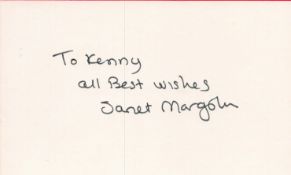 To Kenny
all Best wishes
Janet Margolin